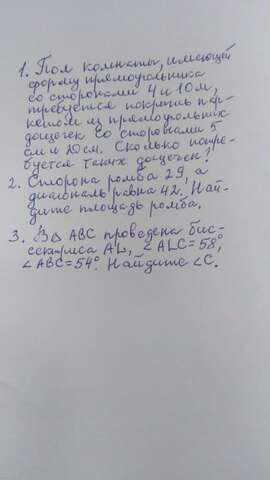 1. Пол комнаты, имеющей
форму прямоугольника
со сторонами 4 и 10 м,
требуется покрыть пар-
кетом из прямоугольных
дощечек со сторонами 5
см и 20 см. Сколько потре-
буется таких дощечек?
2. Сторона ромба 29, а
диагональ равна 42. Най-
дите площадь ромба.
3. В △ ABC проведена бис-
сектриса AL, ∠ALC=58°,
∠ABC=54°. Найдите ∠C.